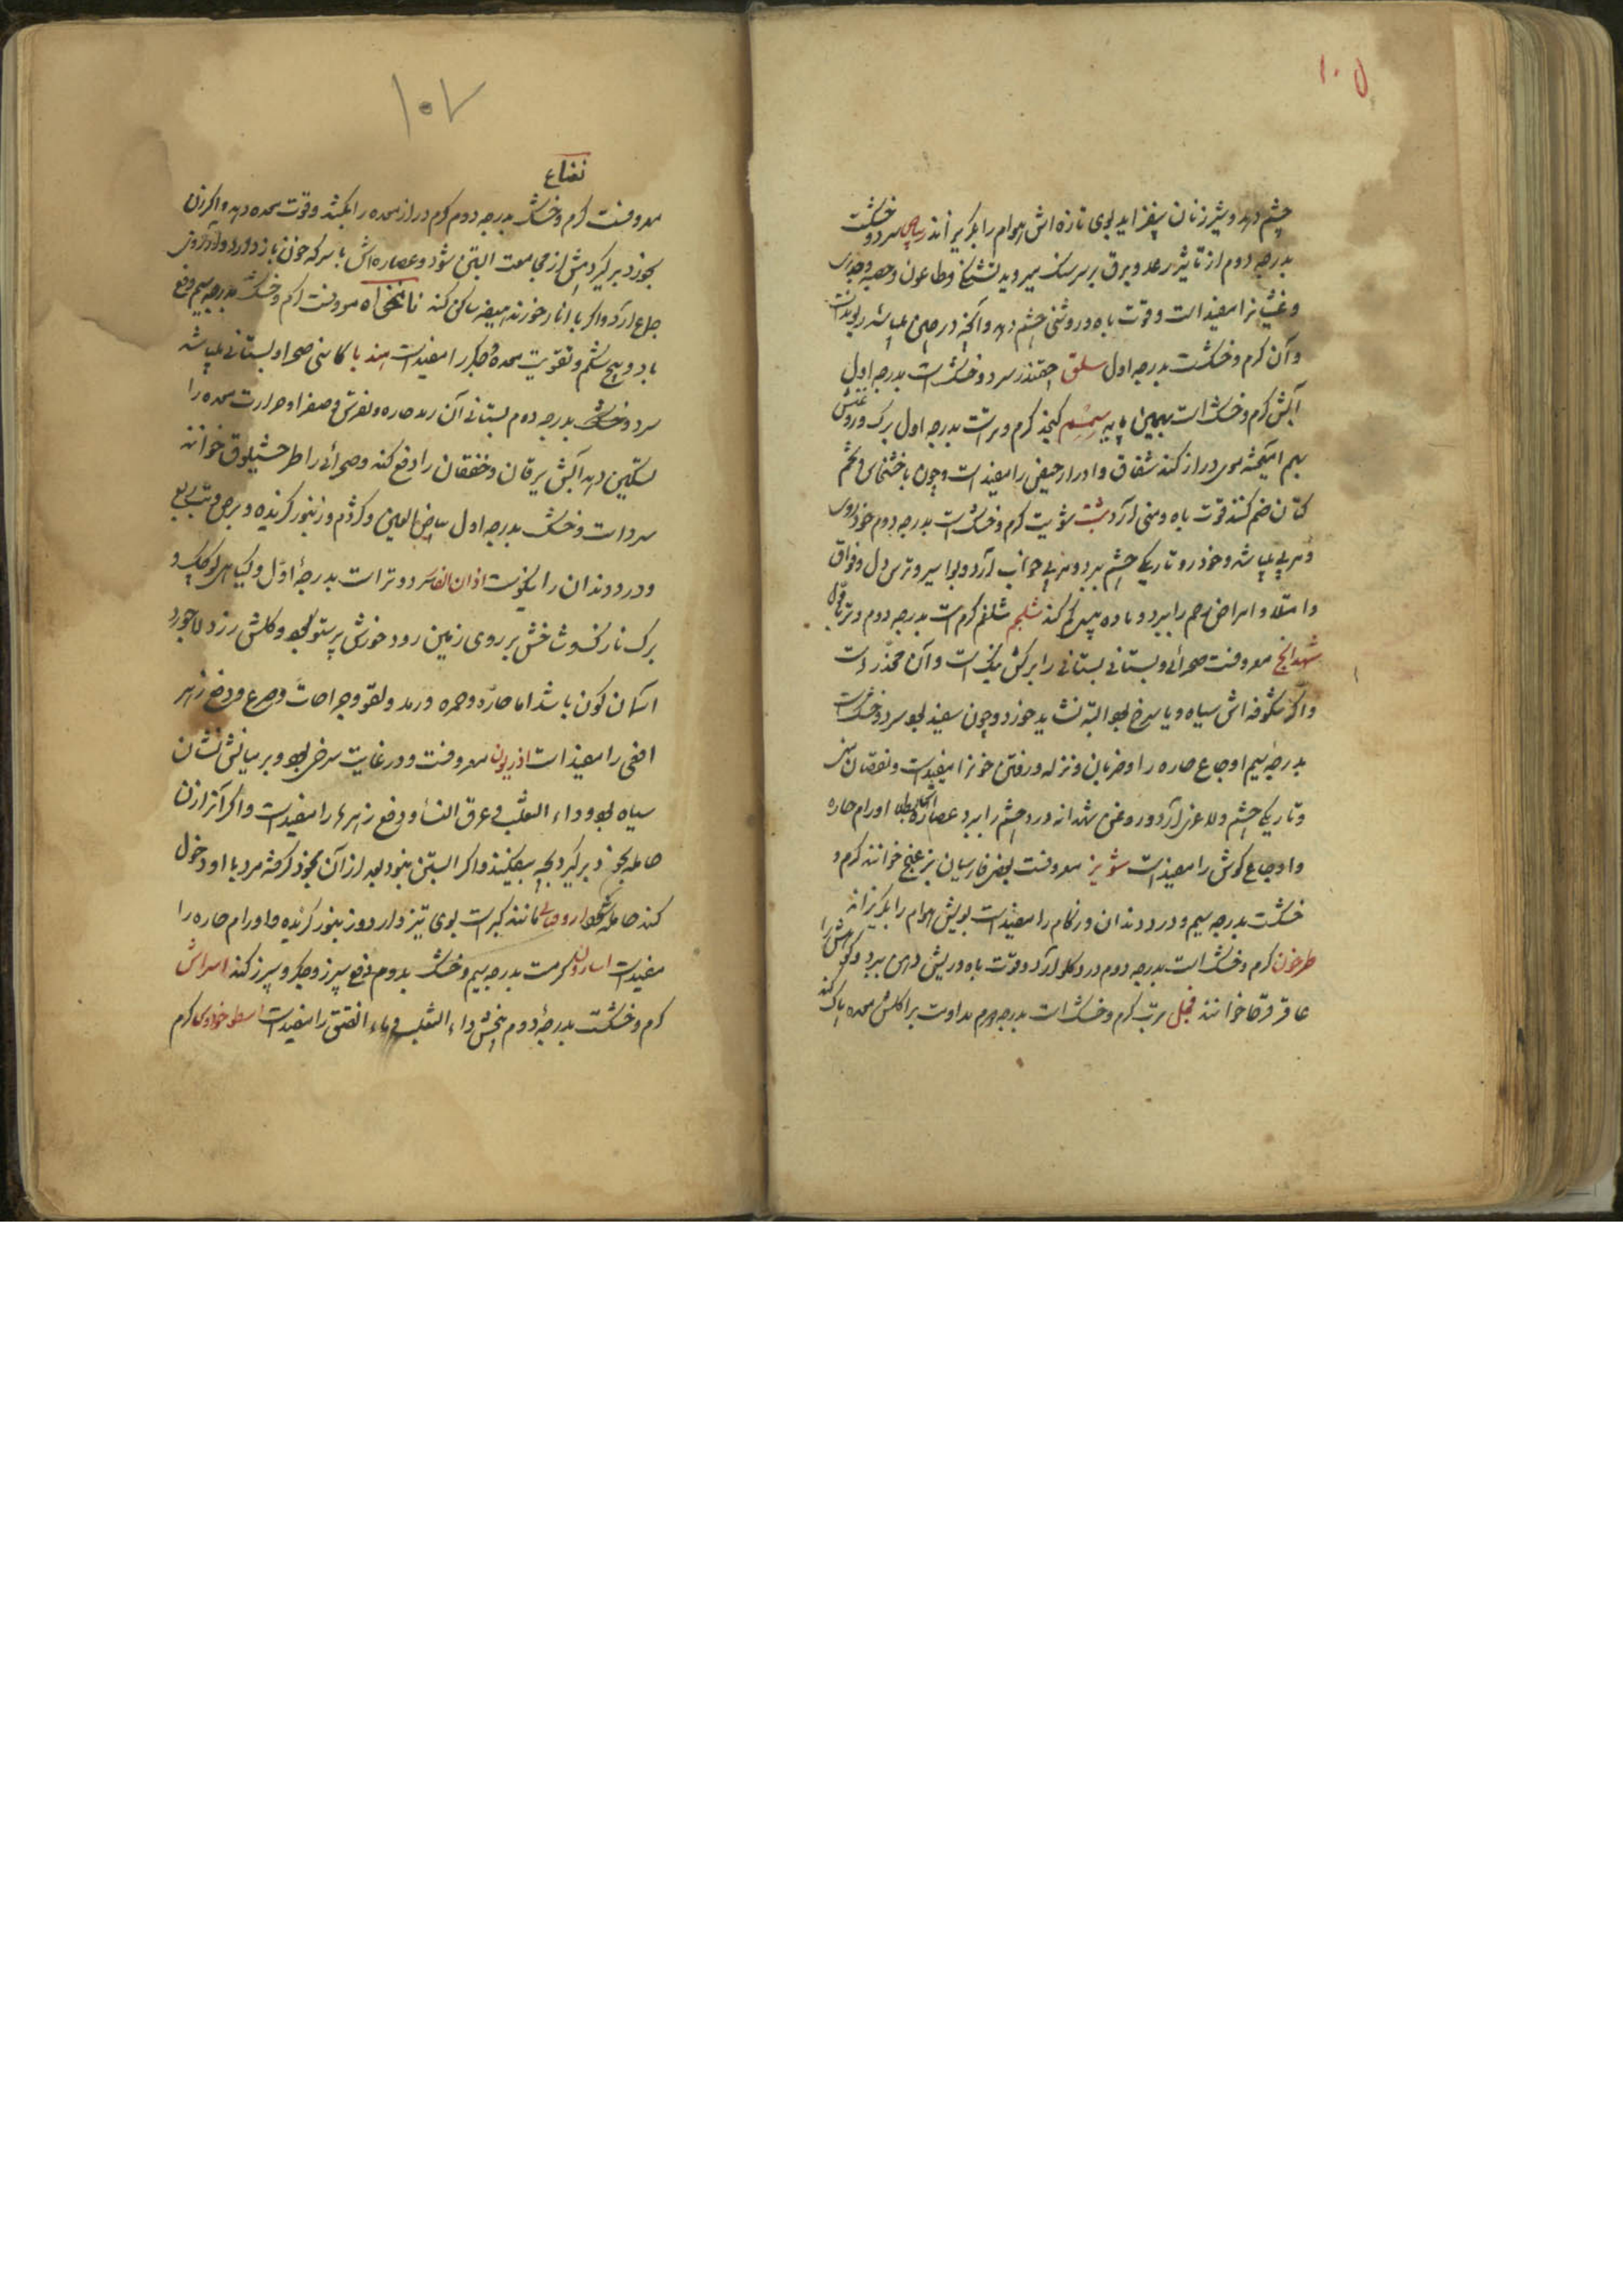 ۱۰۵
چشم دهد و شیر زنان بیفزاید بوی تازه اش هوام را بگریزاند ریباس سرد و خشکست
بدرجه دوم از تاثیر رعد و برق بر سر سنگ میروید تشنگی و طاعون و حصبه و جدری
و غثیانرا مفیدست و قوت باه و روشنی چشم دهد و آنچه در چین میباشد ریوندست
و آن گرم و خشکست بدرجه اول سلق چقندر سرد و خشکست بدرجه اول
آبش گرم و خشک است بهمین پایه سمسم کنجد گرم و ترست بدرجه اول برگ و روغنش
بهم آمیخته موی دراز کند شقاق و ادرار حیض را مفیدست و چون با خشخاش و تخم
کتان ضم کنند قوت باه و منی آرد شبت شویت گرم و خشکست بدرجه دوم خودروی
و هربی میباشد و خودرو تاریکی چشم ببرد و هربی خواب آرد و بواسیر و ترس دل و فواق
و امتلا و امراض رحم را ببرد و ماده پیه کم کند شلجم شلغم گرمست بدرجه دوم و تر باول
شهدانج معروفست صحرائی و بستانی بستانی را برگش بنگ است و آن مخدر است
و اگر شکوفه اش سیاه و یا سرخ بود البته نشاید خورد و چون سفید بود سرد و خشکست
بدرجه سیم اوجاع حاره را و ضربان و نزله و رفتن خونرا مفیدست و نقصان منی
و تاریکی چشم و لاغری آرد و روغن شهدانه درد چشم را ببرد عصاره اورام حاره
و اوجاع گوش را مفیدست شونیز معروفست بعضی فارسیان بزغنج خوانند گرم و
خشکست بدرجه سیم و درد دندان و زکام را مفیدست بویش هوام را بگریزاند
طرخون گرم و خشک است بدرجه دوم درد گلو آرد و قوت باه و ریش دهن ببرد و کوهیش را
عاقرقرحا خوانند فجل ترب گرم و خشک است بدرجه دوم مداومت بر اکلش معده پاک کند
۱۰۷
نعناع
معروفست گرم و خشک بدرجه دوم کرم دراز معده را بکشد و قوت معده دهد و اگر زن
بخود برگیرد پیش از مجامعت آبستن نشود و عصاره اش با سرکه خون باز دارد و آرزوی
جماع آرد و اگر با انار خورند هیضه ساکن کند نانخواه معروفست گرم و خشک بدرجه سیم دفع
باد و پیچ شکم و تقویت معده و جگر را مفیدست هندبا کاسنی صحرا و بستانی میباشد
سرد و خشک بدرجه دوم بستانی آن رمد حاره و نقرس و صفرا و حرارت معده را
تسکین دهد آبش یرقان و خفقان را دفع کند و صحرائی را طرخشقوق خوانند
سردست و خشک بدرجه اول بیاض العین و کژدم و زنبور گزیده و برص و تب ربع
و درد دندان را نیکوست اذان الفار سرد و ترات بدرجۀ اول و گیاهی کوچک و
برگ نازک و شاخش بر روی زمین رود خورش پرستو بود و گلش زرد و لاجورد
آسمان گون باشد اما حاره و حمره و رمد و لقوه و جراحات و صرع و دفع زهر
افعی را مفیدست اذریون معروفست و در غایت سرخی بود و بر میانش نشان
سیاه بود و داء الثعلب و عرق النسا و دفع زهرها را مفیدست و اگر آنرا زن
حامله بخود برگیرد بچه بیفکند و اگر آبستن نبود بعد از آن بخود گرفته مرد با او دخول
کند حامله شود مانند کبرست بوی تیز دارد و زنبور گزیده و اورام حاره را
مفیدست اسارون گرمست بدرجه سیم و خشک بدوم دفع سپرز و جگر و سپرز کند اسراش
گرم و خشکست بدرجۀ دوم بیخش داء الثعلب و داء الفتق را مفیدست اسطوخودوس گرم